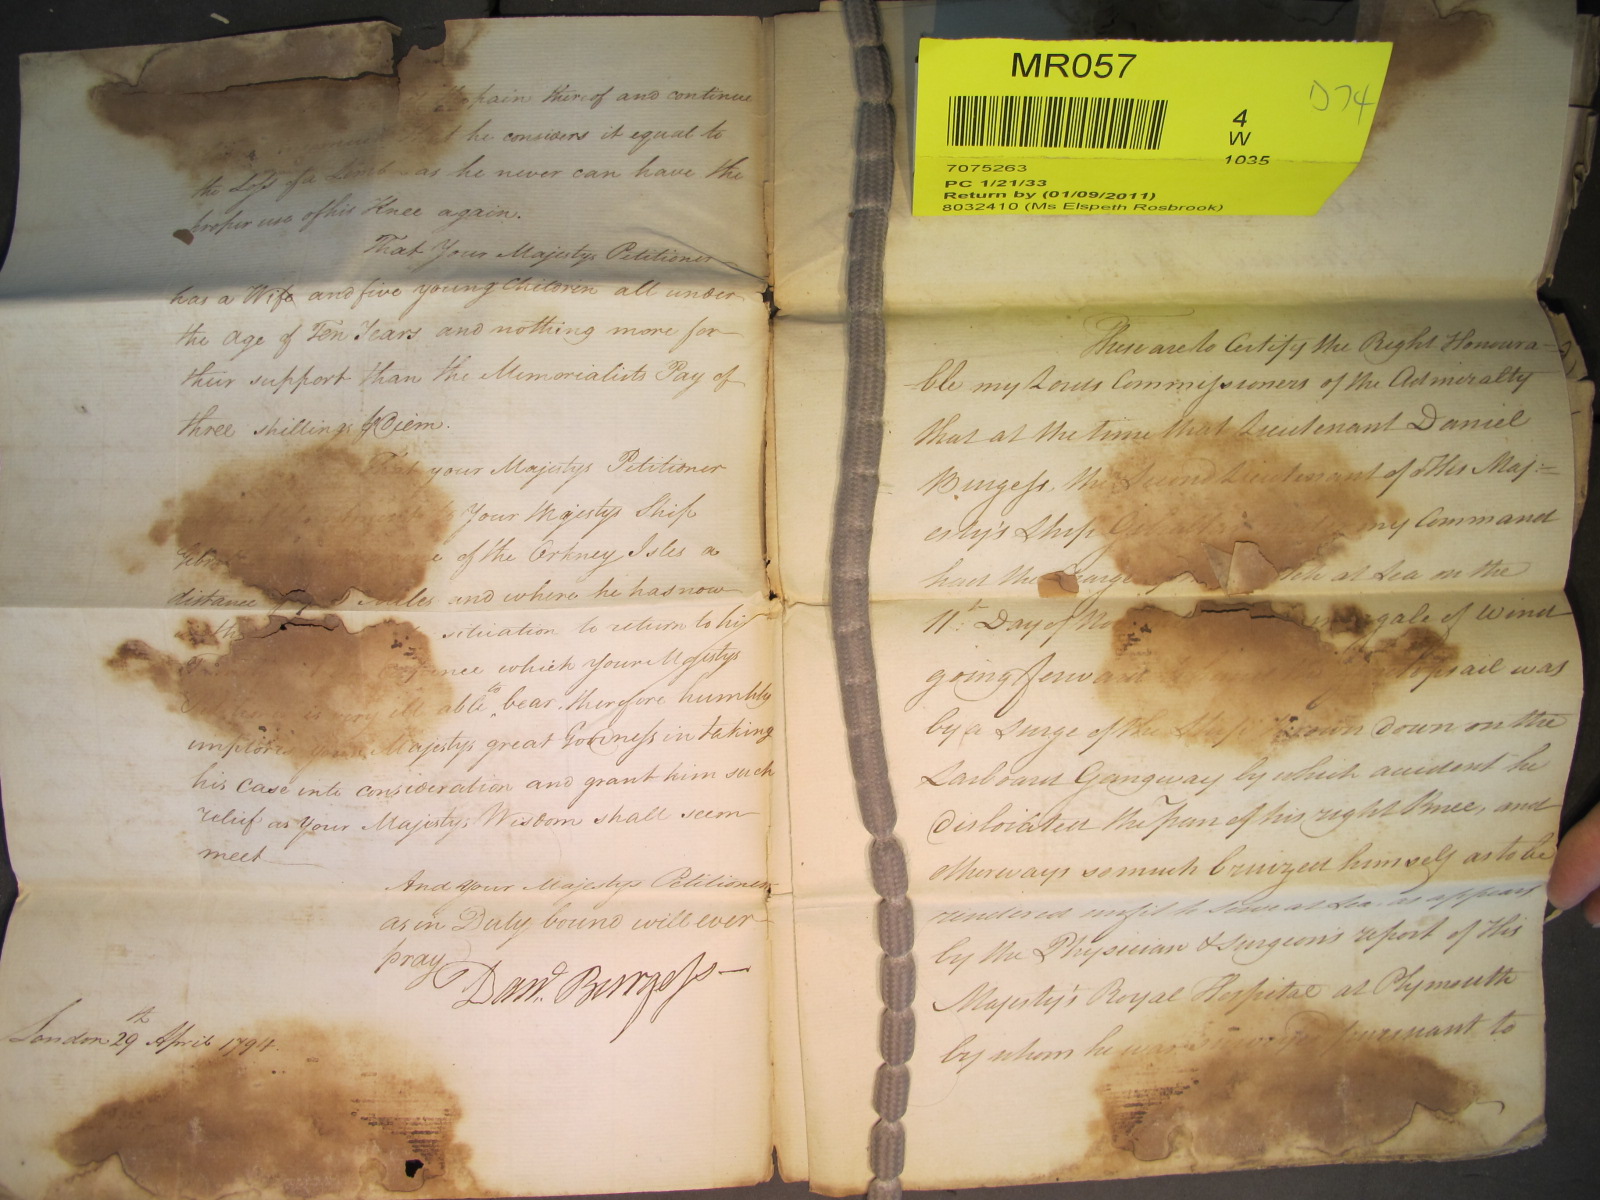 pain thereof and continue
he considers it equal to
the Loss of a Limb as he never can have the
proper use of his Knee again.
That Your Majestys Petitioner
has a Wife and five young Children all under
the Age of Ten Years and nothing more for
their support than the Memorialists Pay of
three shillings ⅌ Diem.
That your Majestys Petitioner
Your Majestys Ship
of the Orkney Isles a
distance Miles and where he has now
situation to return to his
which Your Majestys
is very ill able to bear, therefore humbly
implores Your Majestys great Goodness in taking
his Case into consideration and grant him such
relief as Your Majestys Wisdom shall seem
meet
And Your Majestys Petitioner
as in Duty bound will ever
pray
Danl. Burgess
London 29th April 1794.
MR057
D74
4
W
1035
7075263
PC 1/21/33
Return by (01/09/2011)
8032410 (Ms Elspeth Rosbrook)
These are to Certify the Right Honoura-
ble my Lords Commissioners of the Admiralty
that at the time that Lieutenant Daniel
Burgess, the Second Lieutenant of His Maj=
esty's Ship my Command
had the Charge at Sea on the
11th. Day of gale of Wind
going forward topsail was
by a Surge of the Ship thrown down on the
Larboard Gangway by which accident he
dislocated the pan of his right Knee, and
otherways so much bruized himself as to be
rendered unfit to serve at Sea as appears
by the Physician & Surgeon's report of His
Majesty's Royal Hospital at Plymouth
by whom he was surveyed pursuant to